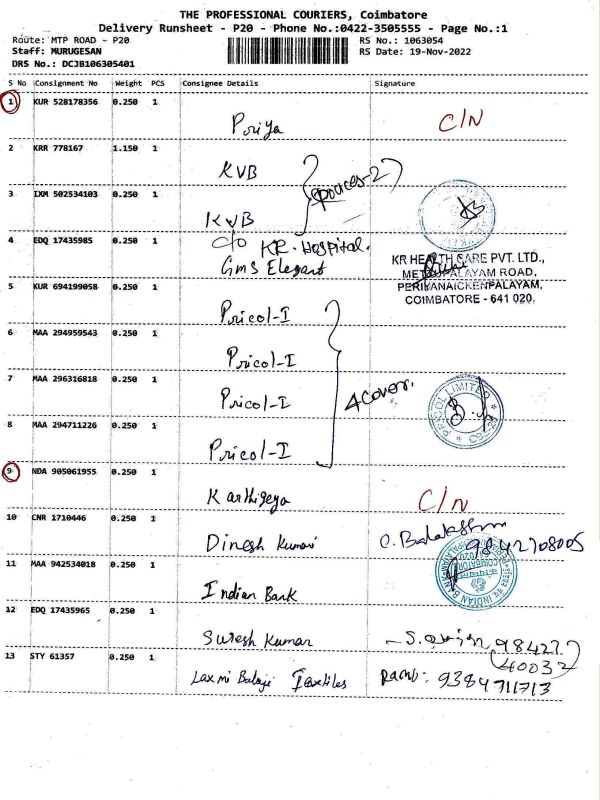 THE PROFESSIONAL COURIERS, Coimbatore
Delivery Runsheet - P20 - Phone No.:0422-3505555 - Page No.:1
Route: MTP ROAD - P20 RS No.: 1063054
Staff: MURUGESAN RS Date: 19-Nov-2022
DRS No.: DCJB106305401
S No Consignment No Weight PCS Consignee Details Signature
1 KUR 528178356 0.250 1 Poriya C/N
2 KRR 778167 1.150 1 KVB
3 IXM 502534103 0.250 1 KVB
4 EDQ 17435985 0.250 1 C/o KR. Hospital.
Gms Elegant
KR HEALTH CARE PVT. LTD.,
METTUPALAYAM ROAD,
PERIYANAICKENPALAYAM,
COIMBATORE - 641 020.
5 KUR 694199058 0.250 1 Pricol-I
6 MAA 294959543 0.250 1 Pricol-I
7 MAA 296316818 0.250 1 Pricol-I 4 Cover.
PRICOL LIMITED
8 MAA 294711226 0.250 1 Pricol-I
9 NDA 905061955 0.250 1 Karthigeya C/N
10 CNR 1710446 0.250 1 Dinesh Kumar 9842708005
11 MAA 942534018 0.250 1 Indian Bank
INDIAN BANK
12 EDQ 17435965 0.250 1 Suresh Kumar 98427
40032
13 STY 61357 0.250 1 Laxmi Balaji Textiles 9384711713